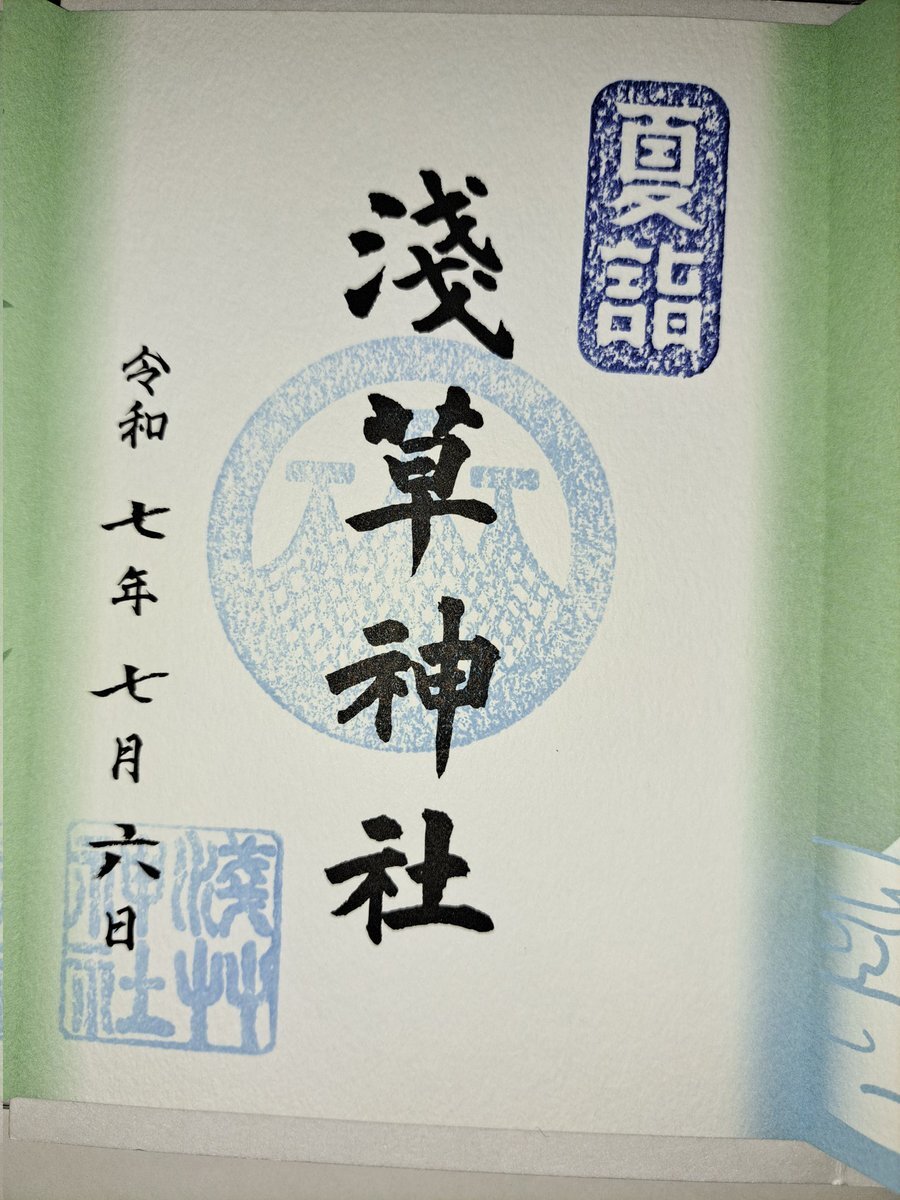 夏詣
淺草神社
令和七年七月六日
淺艸
神社